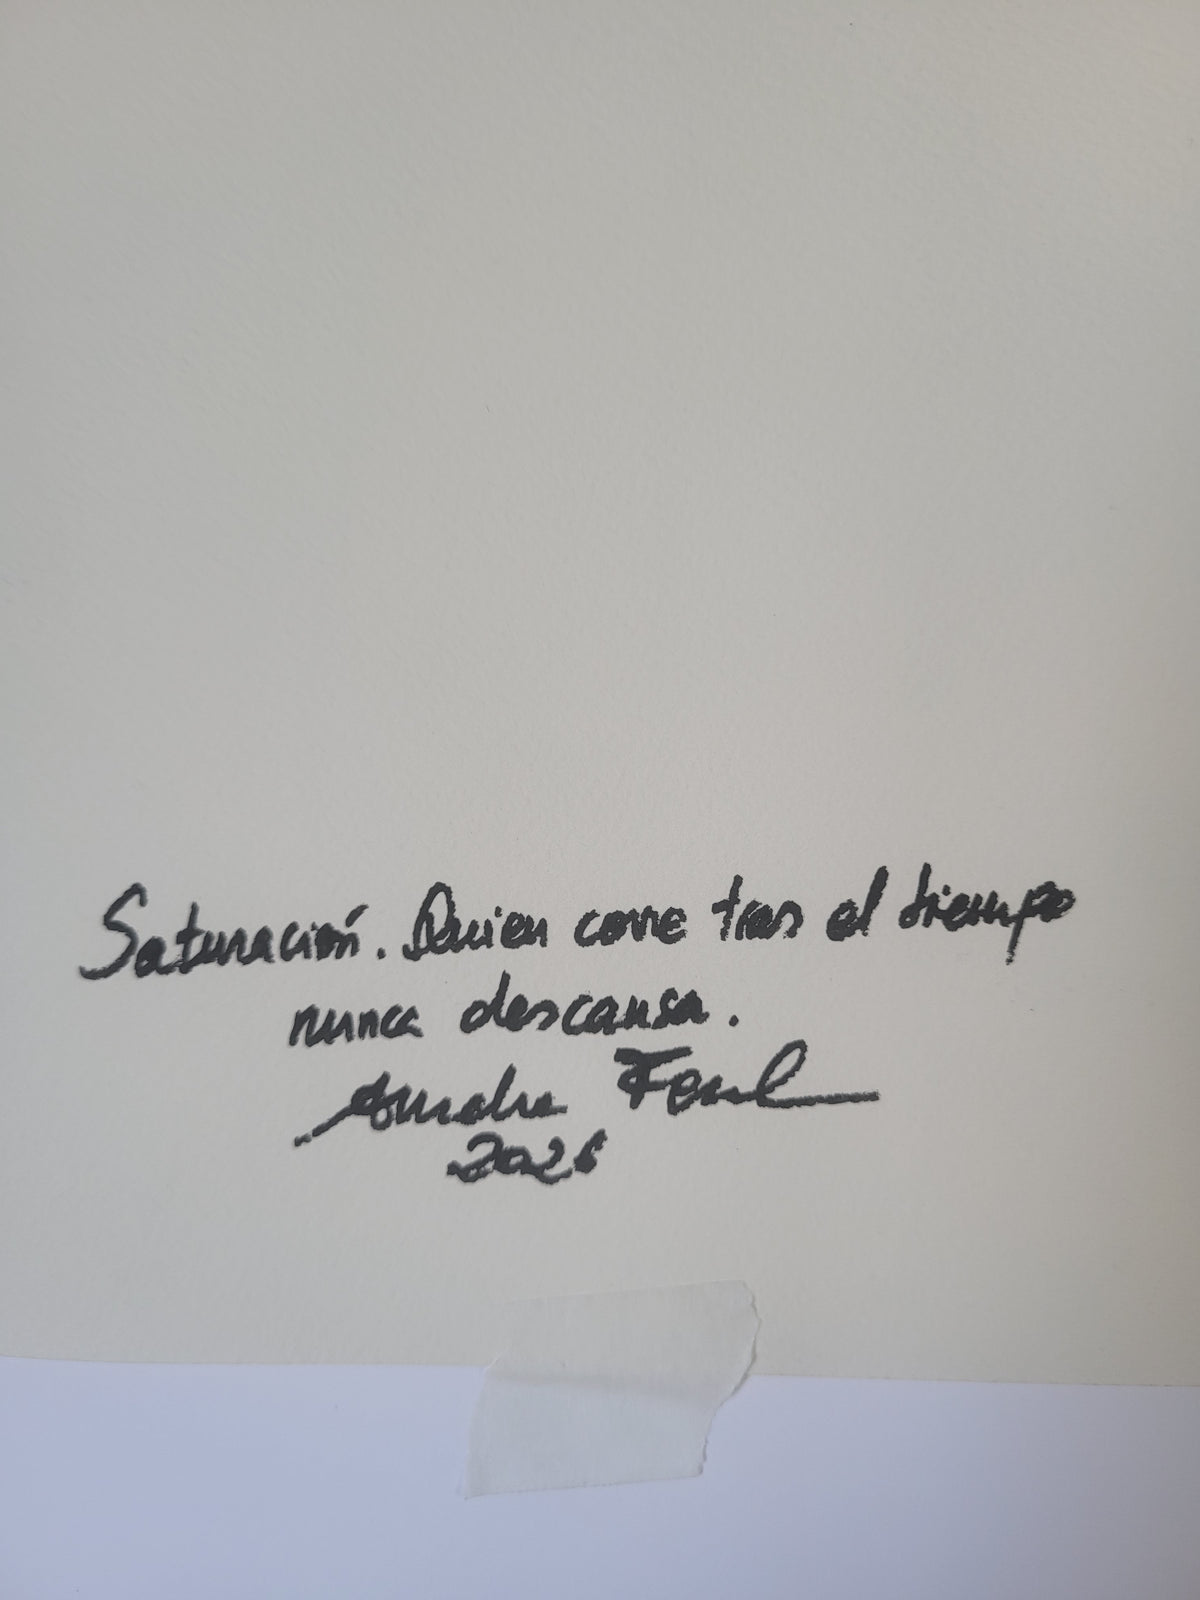 Saturación. Quien corre tras el tiempo
nunca descansa.
2026